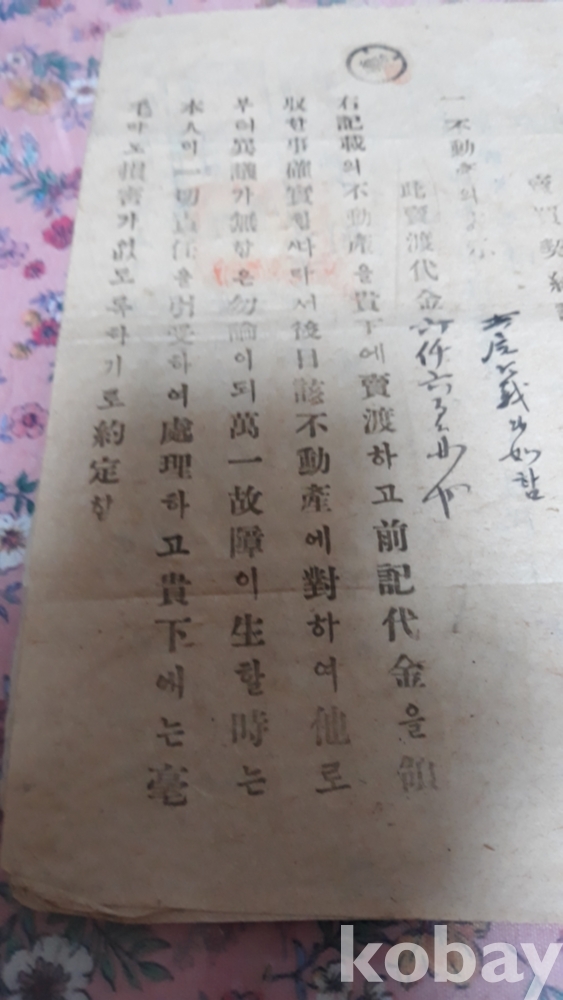 賣買契約
一 不動産의
左記義如함
此賣渡代金
右記載의不動產을貴下에賣渡하고前記代金을領
収한事確實힌바따라서後日該不動產에對하여他로
부터異議가無함은勿論이되萬一故障이生할時는
本人이一切責任을負受하여處理하고貴下에는毫
毛라도損害가없도록하기로約定함
kobay